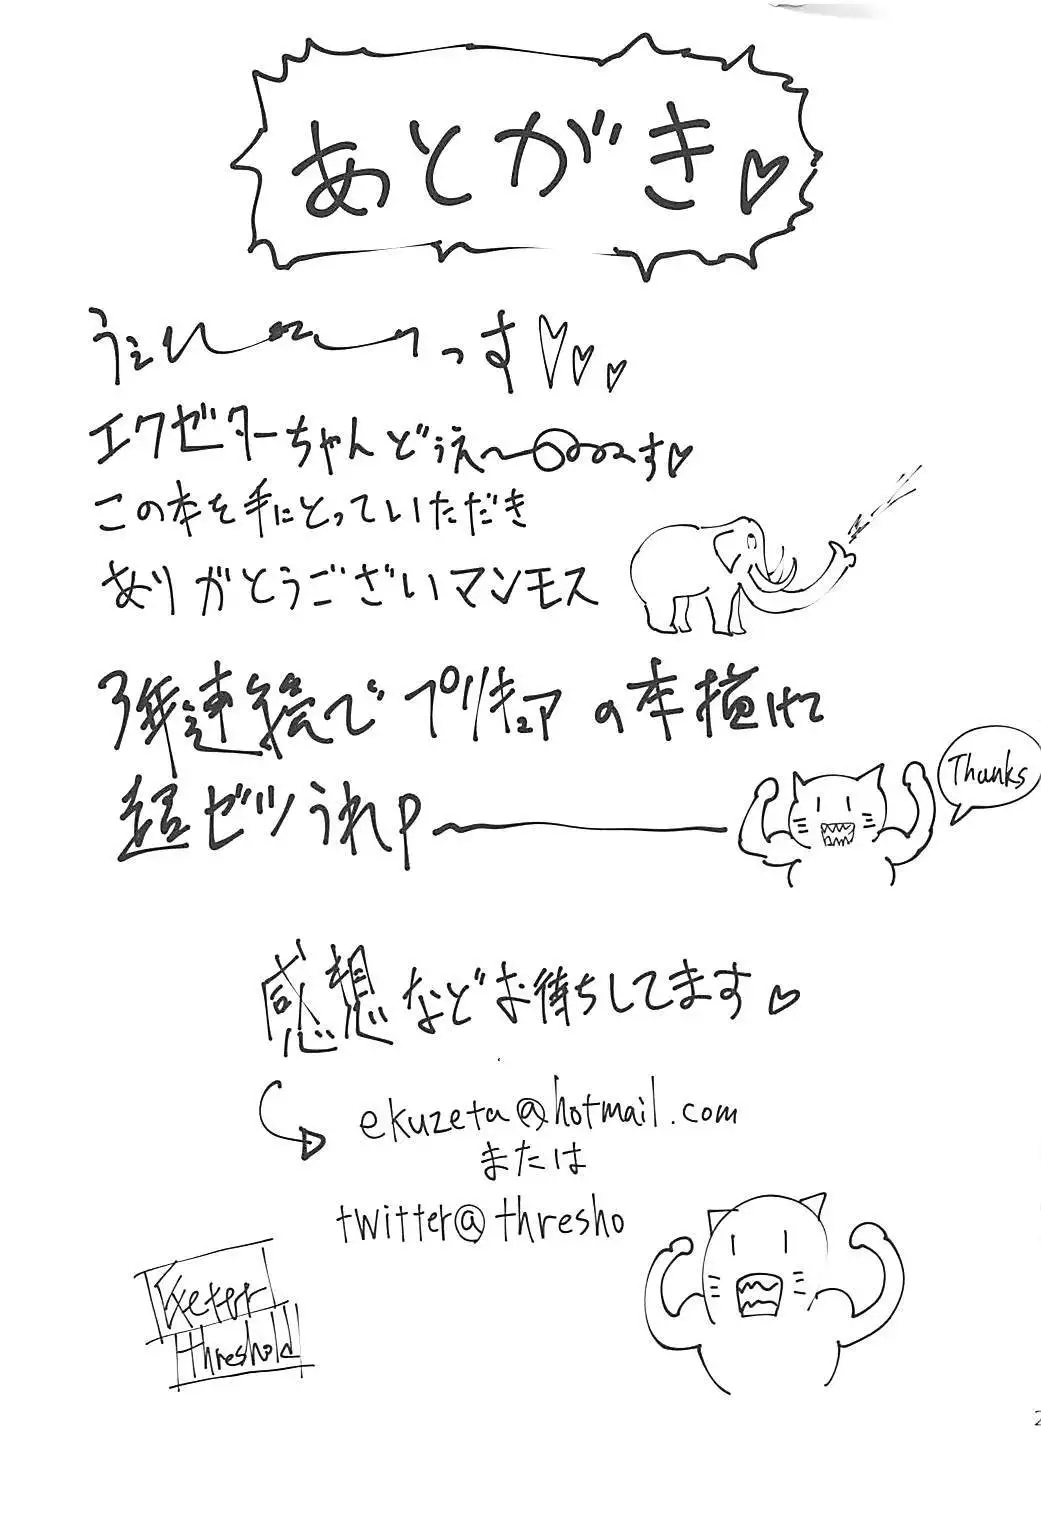 あとがき♡
うぇぃ〜〜〜っす♡♡♡
エクゼターちゃんどぅぇ〜〜〜す♡
この本を手にとっていただき
ありがとうございマンモス
3年連続でプリキュアの本描けて
超ゼツうれP〜
Thanks
感想などお待ちしてます♡
ekuzeta@hotmail.com
または
twitter@thresho
Exeter
threshold
2